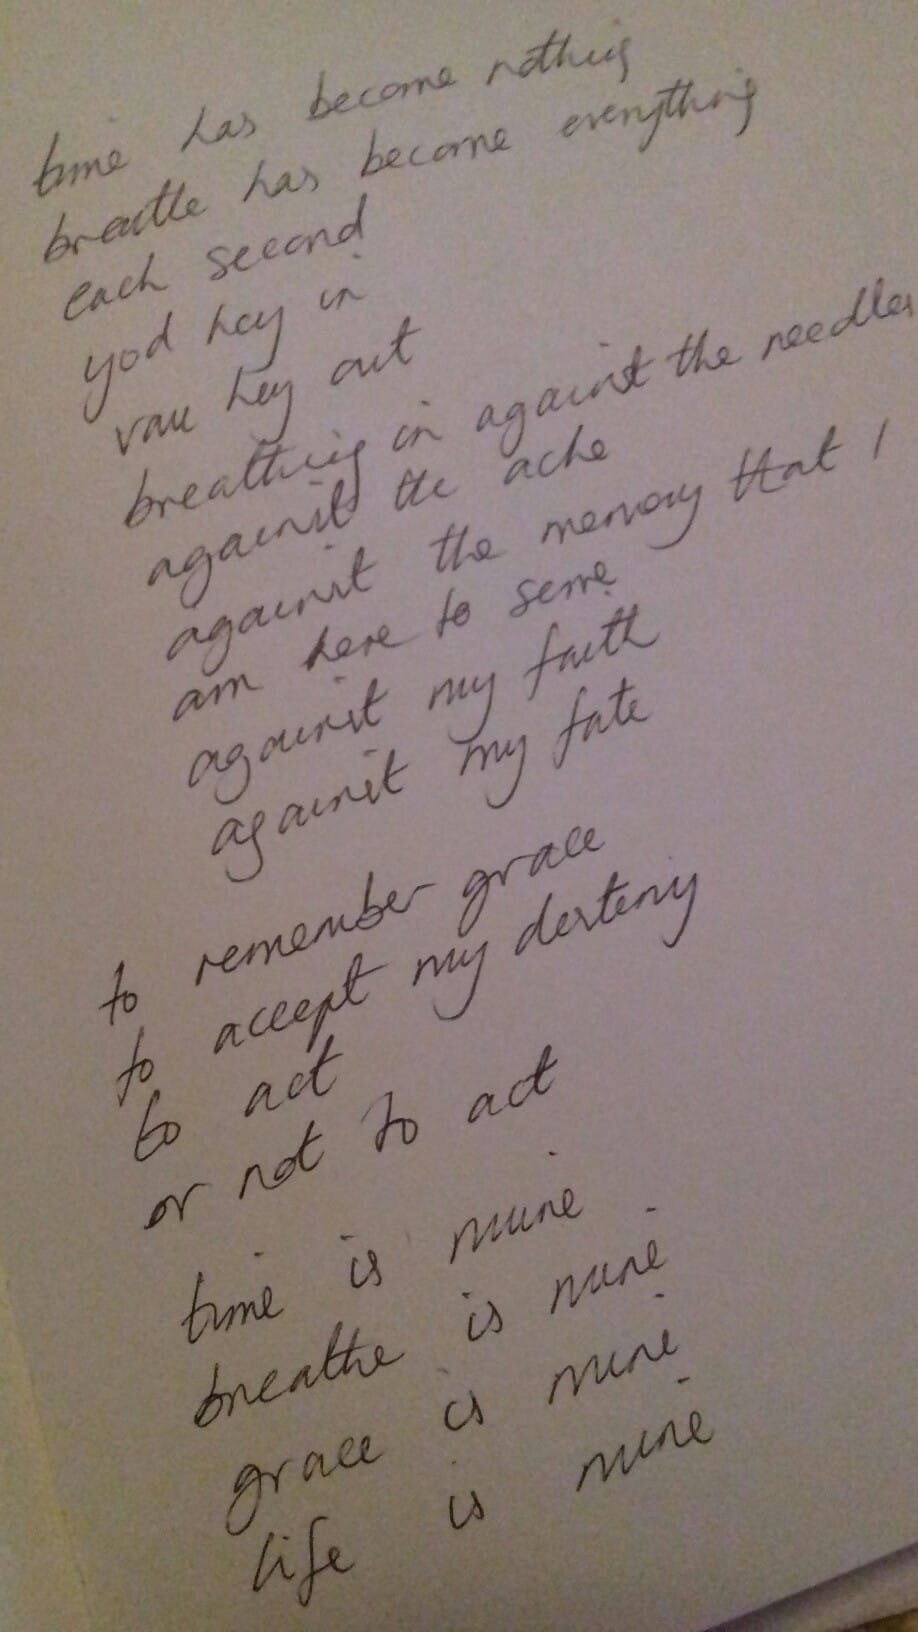 time has become nothing
breathe has become everything
each second
yod hey in
vau hey out
breathing in against the needles
against the ache
against the memory that I
am here to serve
against my faith
against my fate
to remember grace
to accept my desteny
to act
or not to act
time is mine
breathe is mine
grace is mine
life is mine